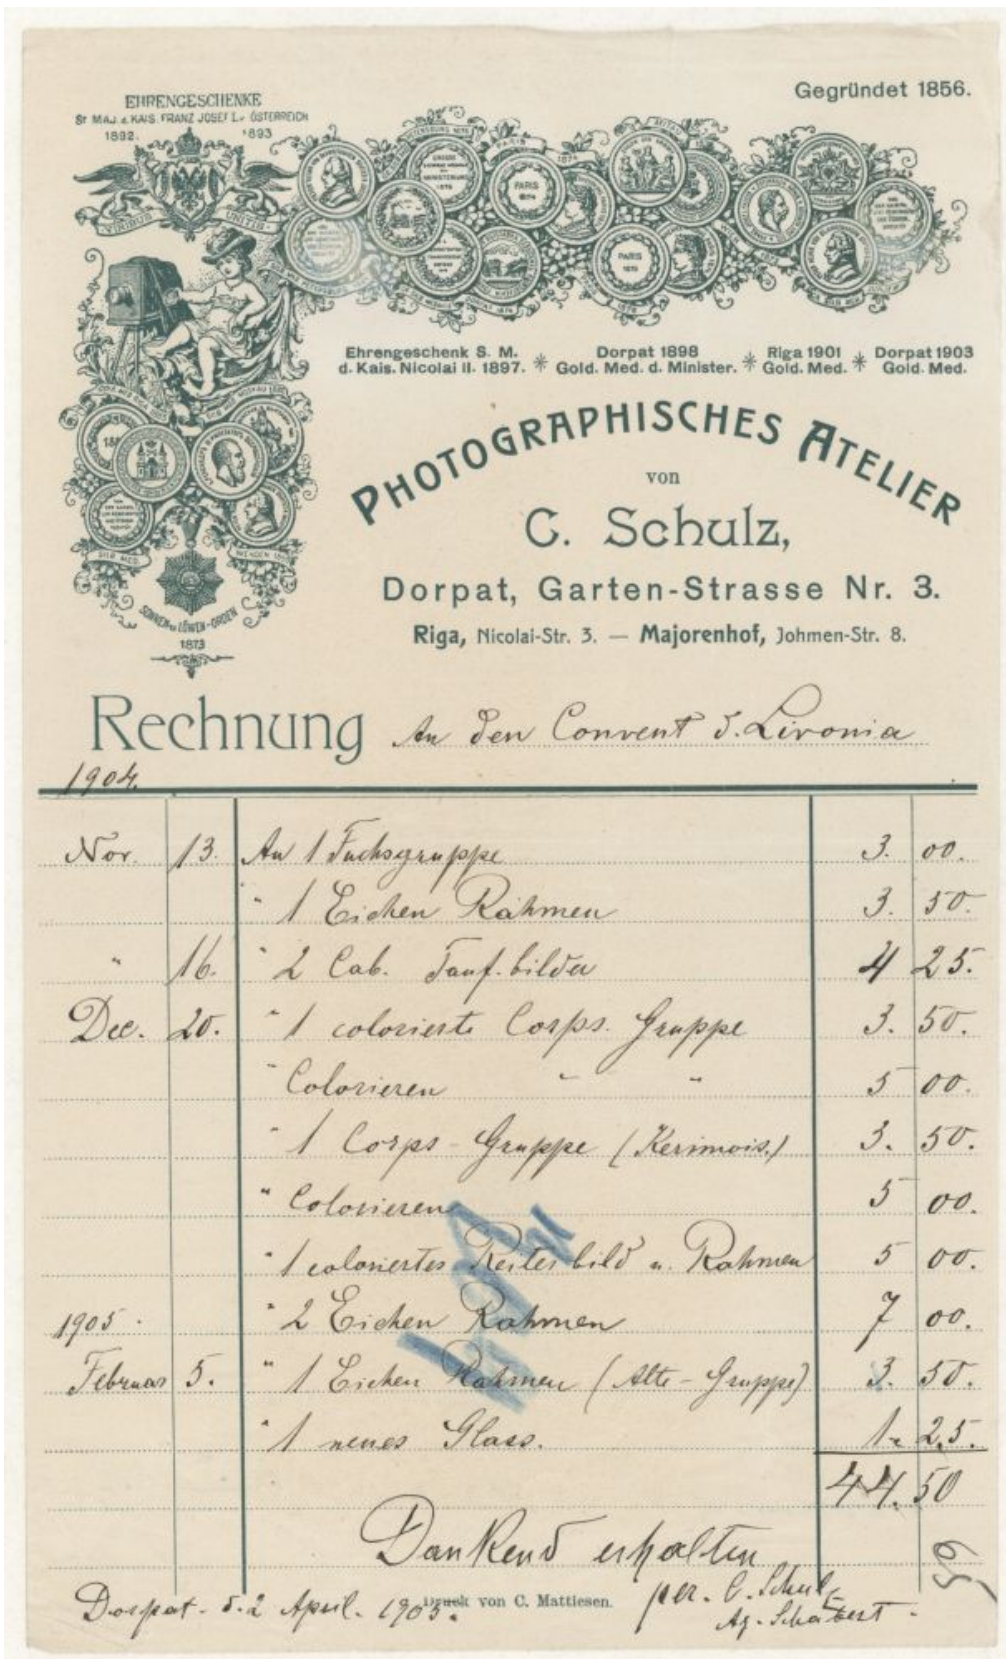 Gegründet 1856.
EHRENGESCHENKE
Sr MAJ. d. KAIS. FRANZ JOSEF I. v. ÖSTERREICH
1892. 1893
VIRIBUS UNITIS
PARIS
1874
PARIS
1875
Ehrengeschenk S. M. d. Kais. Nicolai II. 1897. * Dorpat 1898 Gold. Med. d. Minister. * Riga 1901 Gold. Med. * Dorpat 1903 Gold. Med.
PHOTOGRAPHISCHES ATELIER
von
C. Schulz,
Dorpat, Garten-Strasse Nr. 3.
Riga, Nicolai-Str. 3. — Majorenhof, Johmen-Str. 8.
SILB. MED.
SONNEN u. LÖWEN-ORDEN
1873
Rechnung An den Convent d. Livonia
1904.
Nov. 13. An 1 Fuchsgruppe 3. 00.
" 1 Eichen Rahmen 3. 50.
" 16. " 2 Cab. Tauf-bilder 4 25.
Dec. 20. " 1 colorierte Corps. Gruppe 3. 50.
" Colorieren " " 5 00.
" 1 Corps-Gruppe ( 3. 50.
" Colorieren 5 00.
" 1 coloriertes Reiter bild u. Rahmen 5 00.
1905. " 2 Eichen Rahmen 7 00.
Februar 5. " 1 Eichen Rahmen (Alte-Gruppe) 3. 50.
" 1 neues Glass. 1. 25.
44. 50
Dankend erhalten
per. C. Schulz
Dorpat. d. 2 April. 1905.
Druck von C. Mattiesen.